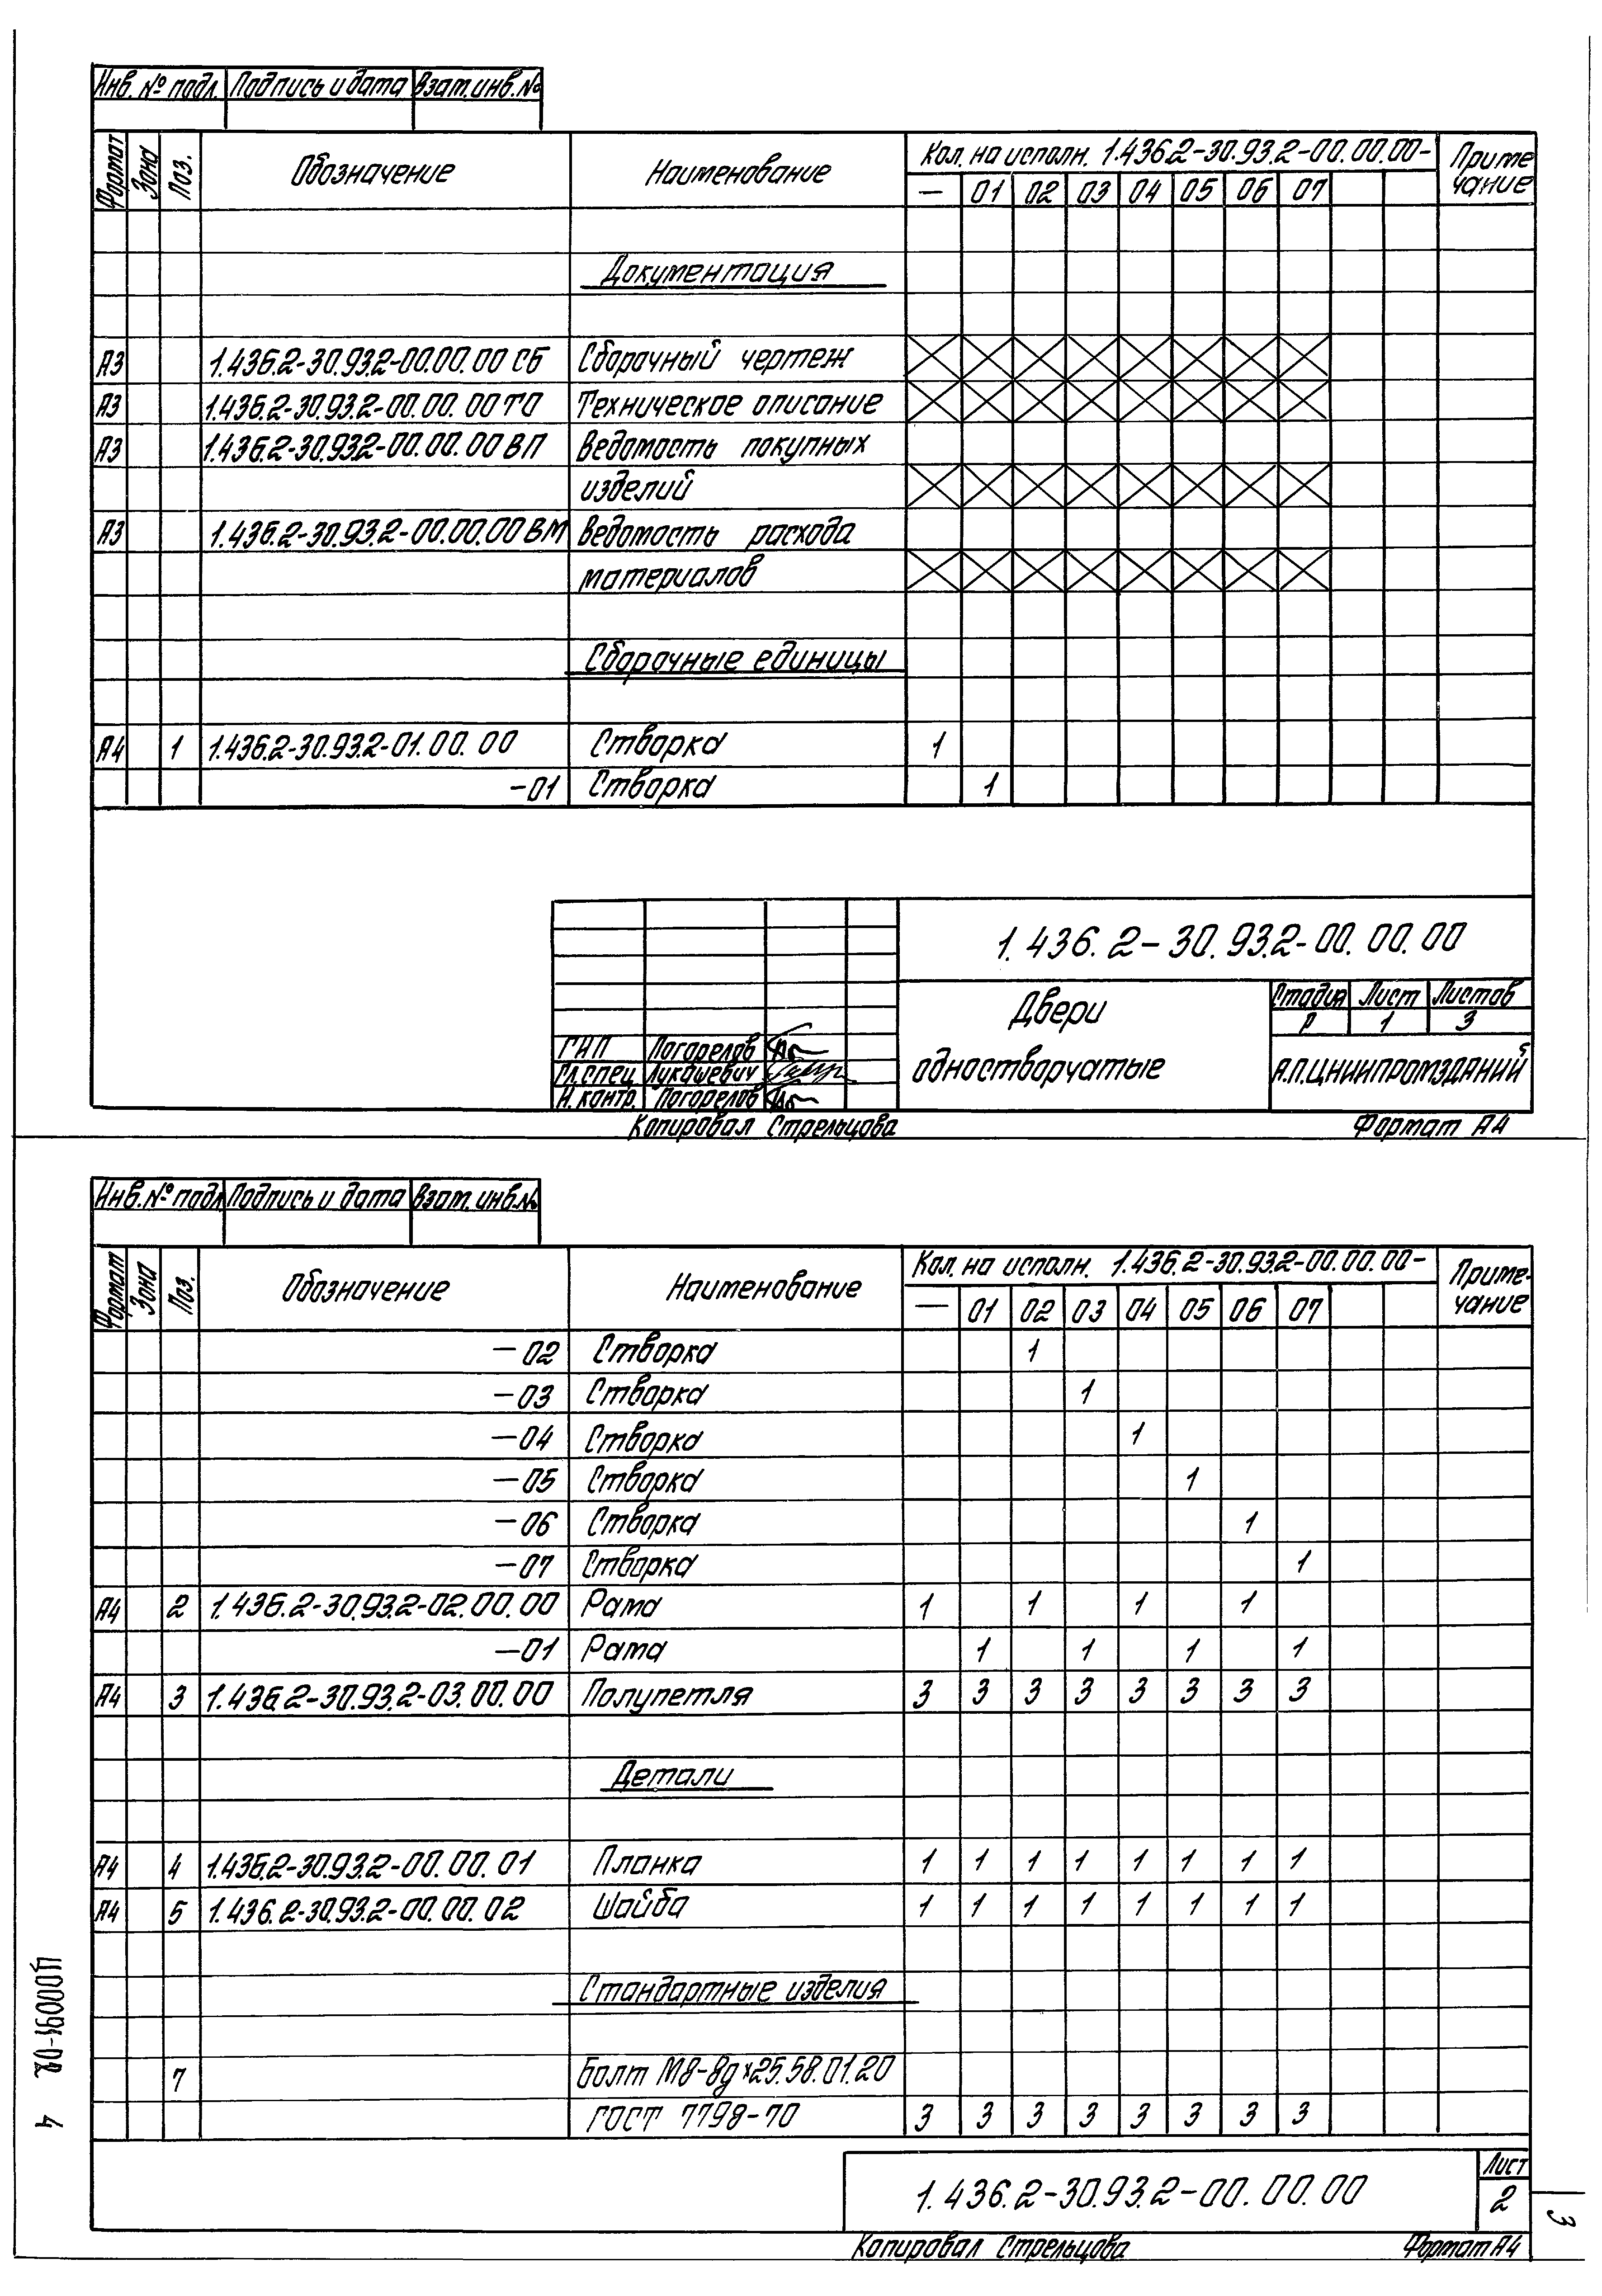 Инв. № подл. Подпись и дата Взам. инв. №
Формат Зона Поз. Обозначение Наименование Кол. на исполн. 1.436.2-30.93.2-00.00.00- Приме
чание
— 01 02 03 04 05 06 07
Документация
А3 1.436.2-30.93.2-00.00.00 СБ Сборочный чертеж
А3 1.436.2-30.93.2-00.00.00 ТО Техническое описание
А3 1.436.2-30.93.2-00.00.00 ВП Ведомость покупных
изделий
А3 1.436.2-30.93.2-00.00.00 ВМ Ведомость расхода
материалов
Сборочные единицы
А4 1 1.436.2-30.93.2-01.00.00 Створка 1
-01 Створка 1
1.436.2-30.93.2-00.00.00
Двери
одностворчатые
Стадия Лист Листов
Р 1 3
А.П.ЦНИИПРОМЗДАНИЙ
ГИП Погорелов
Гл.спец. Лукашевич
Н. контр. Погорелов
Копировал Стрельцова Формат А4
Инв.№ подл Подпись и дата Взам. инв.№
Формат Зона Поз. Обозначение Наименование Кол. на исполн. 1.436.2-30.93.2-00.00.00- Приме-
чание
— 01 02 03 04 05 06 07
—02 Створка 1
—03 Створка 1
—04 Створка 1
—05 Створка 1
—06 Створка 1
—07 Створка 1
А4 2 1.436.2-30.93.2-02.00.00 Рама 1 1 1 1
—01 Рама 1 1 1 1
А4 3 1.436.2-30.93.2-03.00.00 Полупетля 3 3 3 3 3 3 3 3
Детали
А4 4 1.436.2-30.93.2-00.00.01 Планка 1 1 1 1 1 1 1 1
А4 5 1.436.2-30.93.2-00.00.02 Шайба 1 1 1 1 1 1 1 1
Стандартные изделия
7 Болт М8-8g×25.58.01.20
ГОСТ 7798-70 3 3 3 3 3 3 3 3
1.436.2-30.93.2-00.00.00
Лист
2
Копировал Стрельцова Формат А4
3
Ц00091-02 4